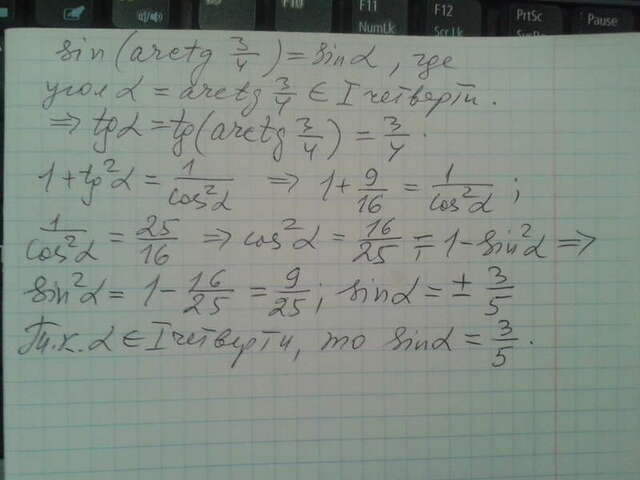 F10
F11
NumLk
F12
Scr Lk
PrtSc
Pause
sin(arctg 3/4) = sin α, где
угол α = arctg 3/4 ∈ I четверти.
⇒ tg α = tg(arctg 3/4) = 3/4.
1 + tg²α = 1/cos²α ⇒ 1 + 9/16 = 1/cos²α ;
1/cos²α = 25/16 ⇒ cos²α = 16/25 = 1 − sin²α ⇒
sin²α = 1 − 16/25 = 9/25; sin α = ± 3/5
Т.к. α ∈ I четверти, то sin α = 3/5.